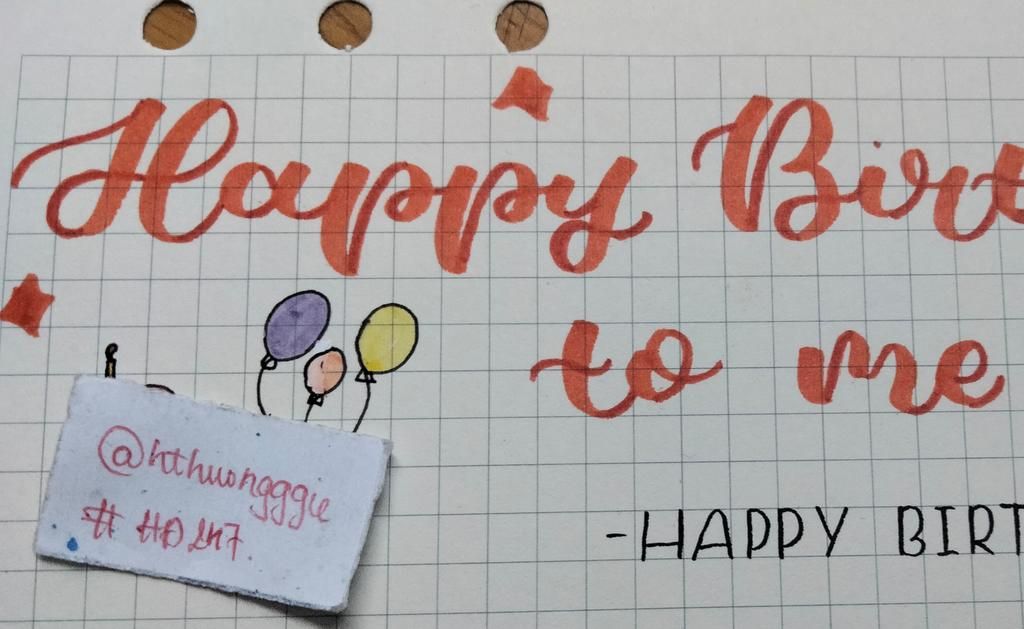 Happy Birt
to me
@hthuongggie
# HD247
-HAPPY BIRT